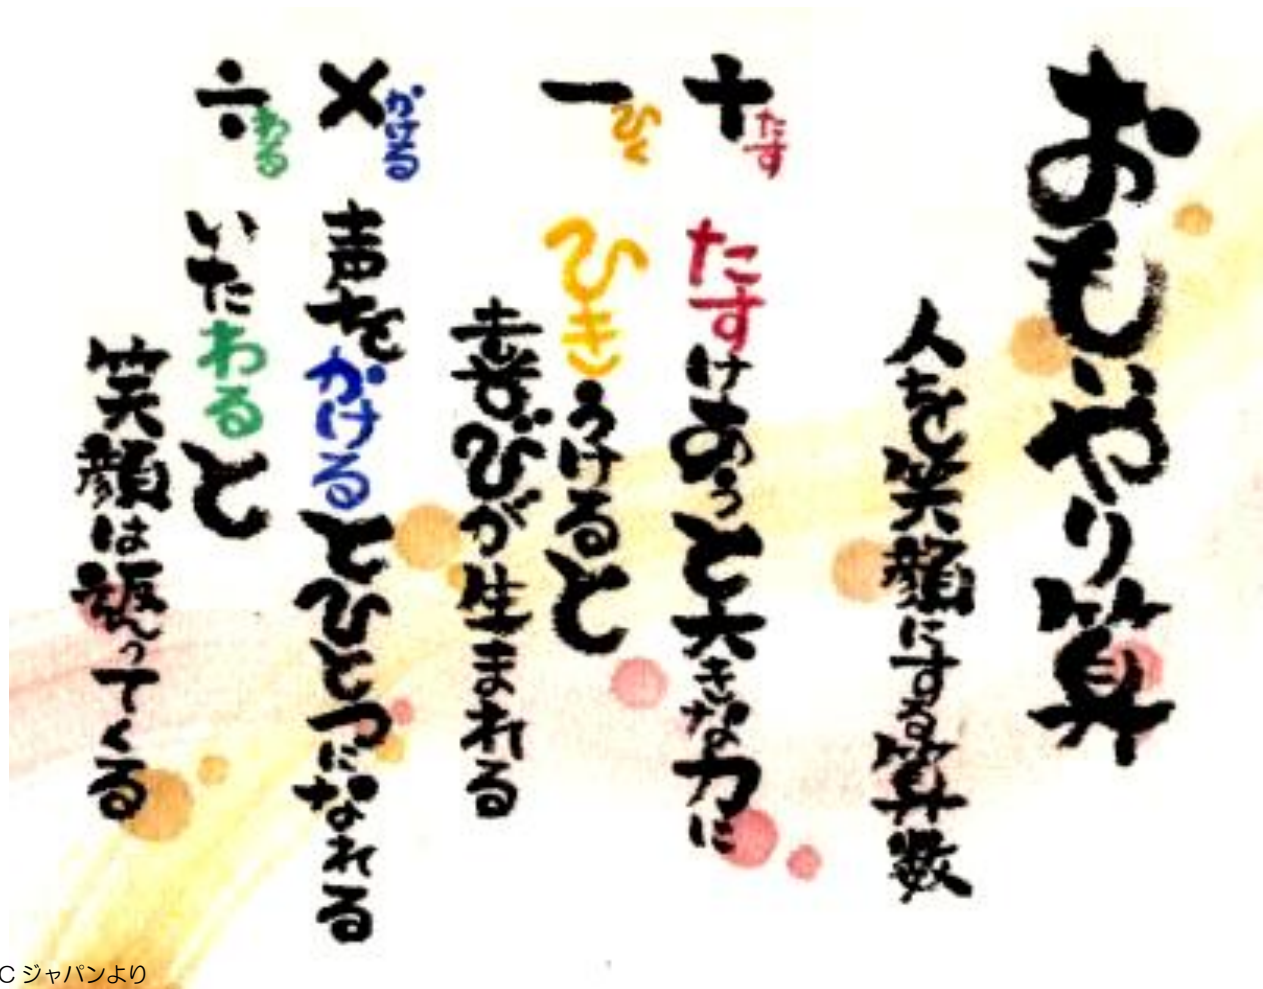 おもいやり算
人を笑顔にする算数
+ たす たすけあうと大きな力に
− ひく ひきうけると
喜びが生まれる
× かける 声をかけるとひとつになれる
÷ わる いたわると
笑顔は返ってくる
C ジャパンより